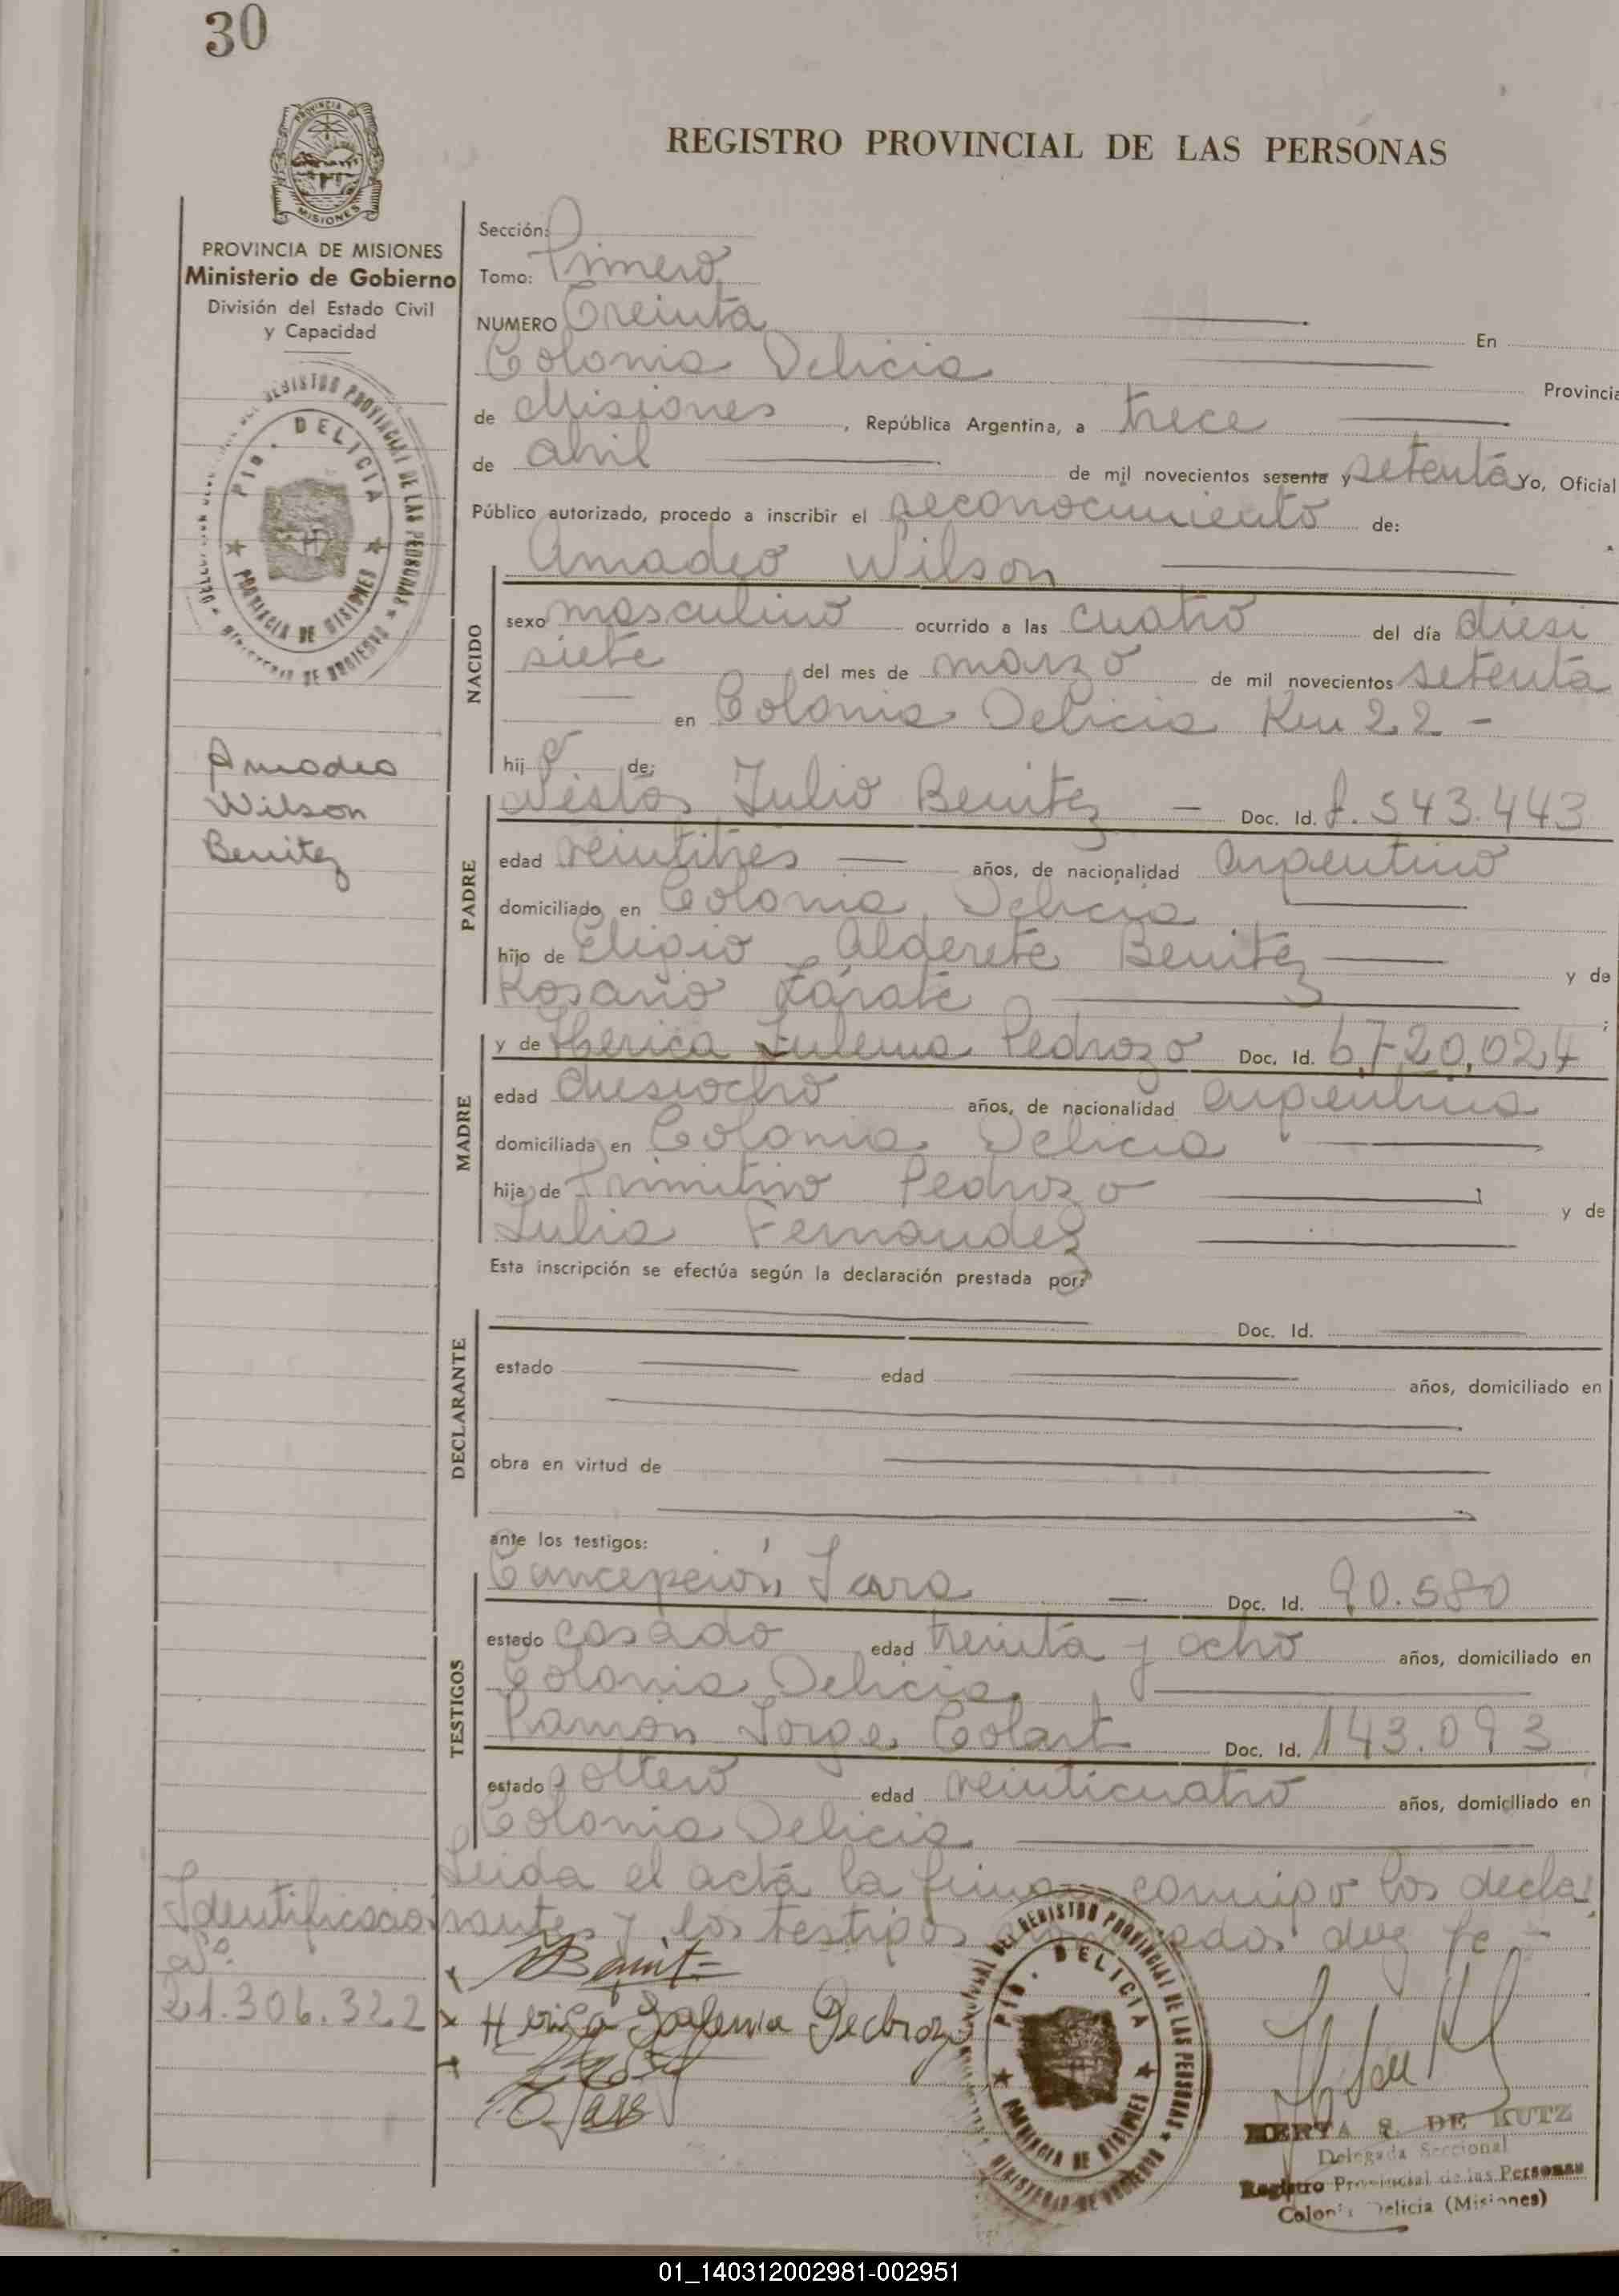 30
REGISTRO PROVINCIAL DE LAS PERSONAS
PROVINCIA DE MISIONES
Ministerio de Gobierno
División del Estado Civil
y Capacidad
Sección:
Tomo: Primero
NUMERO Treinta En
Colonia Delicia Provincia
de Misiones, República Argentina, a trece
de abril de mil novecientos sesenta y setenta Yo, Oficial
Público autorizado, procedo a inscribir el reconocimiento de:
Amadeo Wilson
NACIDO
sexo masculino ocurrido a las cuatro del día diesi
siete del mes de marzo de mil novecientos setenta
en Colonia Delicia Km 22 -
hijo de:
Amadeo
Wilson
Benitez
PADRE
Nestor Julio Benitez - Doc. Id. 8.543.443
edad veintitres años, de nacionalidad argentino
domiciliado en Colonia Delicia
hijo de Eligio Alderete Benitez y de
Rosario Zárate ;
MADRE
y de Iberica Zulema Pedrozo Doc. Id. 6.720.024
edad diesiocho años, de nacionalidad argentina
domiciliada en Colonia Delicia
hija de Primitivo Pedrozo y de
Julia Fernandez
Esta inscripción se efectúa según la declaración prestada por:
DECLARANTE
Doc. Id.
estado edad años, domiciliado en
obra en virtud de
ante los testigos:
TESTIGOS
Concepción Jara Doc. Id. 90.580
estado casado edad treinta y ocho años, domiciliado en
Colonia Delicia
Ramón Jorge Colart Doc. Id. 143.093
estado soltero edad veinticuatro años, domiciliado en
Colonia Delicia
Leida el acta la firman conmigo los decla
rantes y los testigos doy fe -
Identificacion
Nº
21.306.322
Benit
Pedrozo
REGISTRO PROVINCIAL DE LAS PERSONAS
PTO. DELICIA
PROVINCIA DE MISIONES
HERTA S. DE KUTZ
Delegada Seccional
Registro Provincial de las Personas
Colonia Delicia (Misiones)
01_140312002981-002951